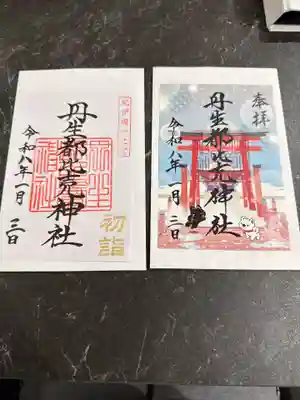 紀伊國一之宮
丹生都比売神社
令和八年一月三日
初詣
奉拝
丹生都比売神社
令和八年一月三日